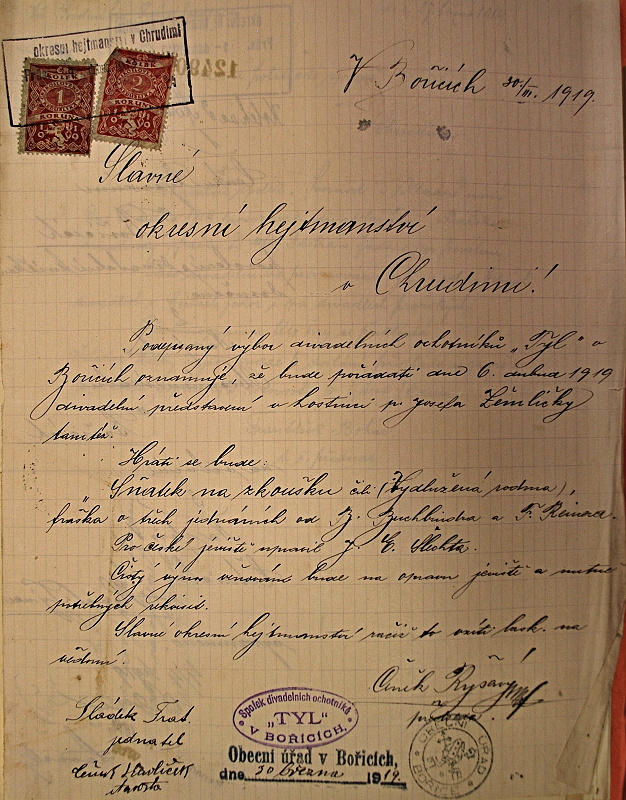 okresní hejtmanství v Chrudimi
KOLEK
1
KORUNA
V Bořicích 30./III. 1919.
Slavné
okresní hejtmanství
v Chrudimi!
Podepsaný výbor divadelních ochotníků „Tyl" v
Bořicích oznamuje, že bude pořádati dne 6. dubna 1919
divadelní představení v hostinci p. Josefa Žemličky
tamtéž.
Hráti se bude:
„Sňatek na zkoušku čili (Vydlužená rodina),
fraška o třech jednáních od B. Buchbindra a F. Reinera.
Pro české jeviště upravil J. E. Šlechta.
Čistý výnos věnován bude na opravu jeviště a nutně
potřebných
Slavné okresní hejtmanství račiž to vzíti lask. na
vědomí.
Čeněk Ryšavý
Sládek Frat.
jednatel
starosta
Spolek divadelních ochotníků
„TYL"
V BOŘICÍCH.
Obecní úřad v Bořicích,
dne 30 března 1919.
OBECNÍ ÚŘAD